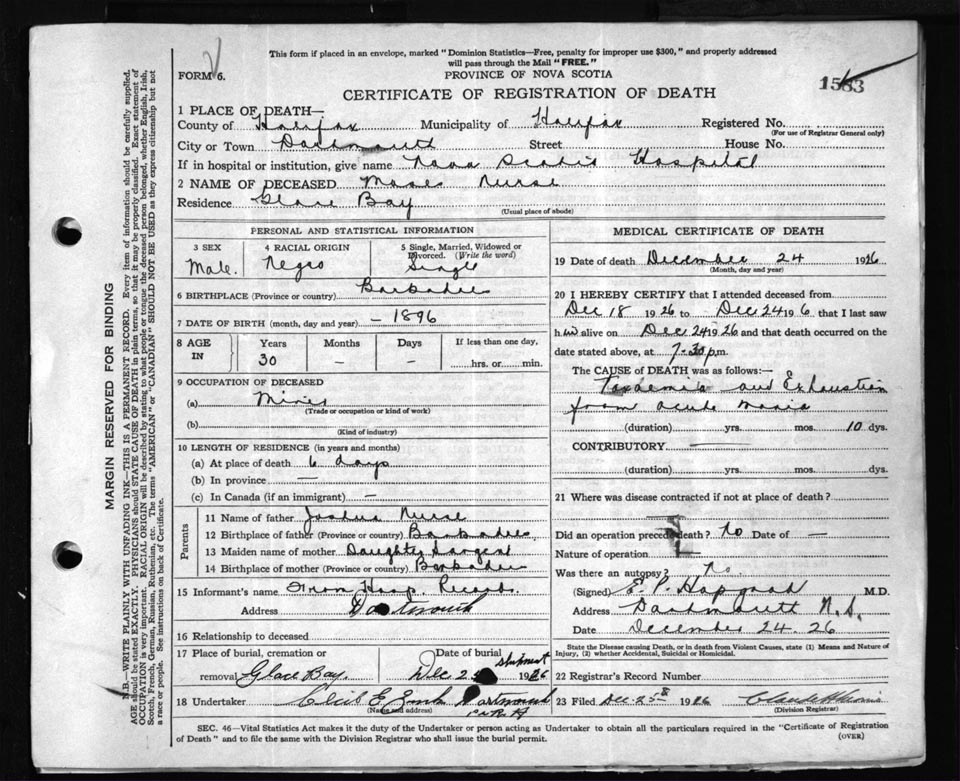 This form if placed in an envelope, marked "Dominion Statistics—Free, penalty for improper use $300," and properly addressed
will pass through the Mail "FREE."
FORM 6.
PROVINCE OF NOVA SCOTIA
CERTIFICATE OF REGISTRATION OF DEATH
1 PLACE OF DEATH—
County of Halifax Municipality of Halifax Registered No.
(For use of Registrar General only)
City or Town Dartmouth Street House No.
If in hospital or institution, give name Nova Scotia Hospital
2 NAME OF DECEASED Moses Nurse
Residence Glace Bay
(Usual place of abode)
PERSONAL AND STATISTICAL INFORMATION
3 SEX 4 RACIAL ORIGIN 5 Single, Married, Widowed or
Divorced. (Write the word)
Male. Negro Single
6 BIRTHPLACE (Province or country) Barbadoes
7 DATE OF BIRTH (month, day and year) – 1896
8 AGE Years Months Days If less than one day,
IN 30 – – hrs. or min.
9 OCCUPATION OF DECEASED
(a) Miner
(Trade or occupation or kind of work)
(b)
(Kind of industry)
10 LENGTH OF RESIDENCE (in years and months)
(a) At place of death 6 days
(b) In province —
(c) In Canada (if an immigrant) —
Parents
11 Name of father Joshua Nurse
12 Birthplace of father (Province or country) Barbadoes
13 Maiden name of mother Sargent
14 Birthplace of mother (Province or country) Barbadoes
15 Informant's name From Hosp. Records.
Address Dartmouth
16 Relationship to deceased
17 Place of burial, cremation or Date of burial shipment
removal Glace Bay. Dec 2 1926
18 Undertaker Dartmouth
(Name and address)
MEDICAL CERTIFICATE OF DEATH
19 Date of death December 24 1926
(Month, day and year)
20 I HEREBY CERTIFY that I attended deceased from
Dec 18 1926 to Dec 24 1926, that I last saw
him alive on Dec 24 1926 and that death occurred on the
date stated above, at 7-30 p.m.
The CAUSE of DEATH was as follows:—
Toxaemia and Exhaustion
from acute mania
(duration) yrs. mos. 10 dys.
CONTRIBUTORY
(duration) yrs. mos. dys.
21 Where was disease contracted if not at place of death?
Did an operation precede death? No Date of —
Nature of operation
Was there an autopsy? No.
(Signed) E. P. Hapgood M.D.
Address Dartmouth N.S.
Date December 24. 26
State the Disease causing Death, or in death from Violent Causes, state (1) Means and Nature of
Injury, (2) whether Accidental, Suicidal or Homicidal.
22 Registrar's Record Number
23 Filed Dec. 25th 1926
(Division Registrar)
SEC. 46—Vital Statistics Act makes it the duty of the Undertaker or person acting as Undertaker to obtain all the particulars required in the "Certificate of Registration
of Death" and to file the same with the Division Registrar who shall issue the burial permit.
(OVER)
MARGIN RESERVED FOR BINDING
N.B.—WRITE PLAINLY WITH UNFADING INK—THIS IS A PERMANENT RECORD. Every item of information should be carefully supplied.
AGE should be stated EXACTLY. PHYSICIANS should STATE CAUSE OF DEATH in plain terms, so that it may be properly classified. Exact statement of
OCCUPATION is very important. RACIAL ORIGIN will be described by stating to what people or tongue the deceased person belonged, whether English, Irish,
Scotch, French, German, Russian, Ruthenian, etc. The terms "AMERICAN" or "CANADIAN" SHOULD NOT BE USED as they express citizenship but not
a race or people. See instructions on back of Certificate.